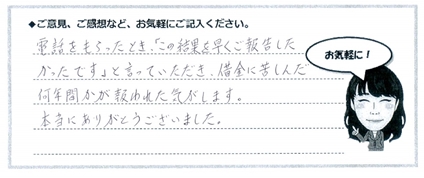 ◆ご意見、ご感想など、お気軽にご記入ください。
電話をもらったとき、「この結果を早くご報告した
かったです」と言っていただき、借金に苦しんだ
何年間かが報われた気がします。
本当にありがとうございました。
お気軽に！